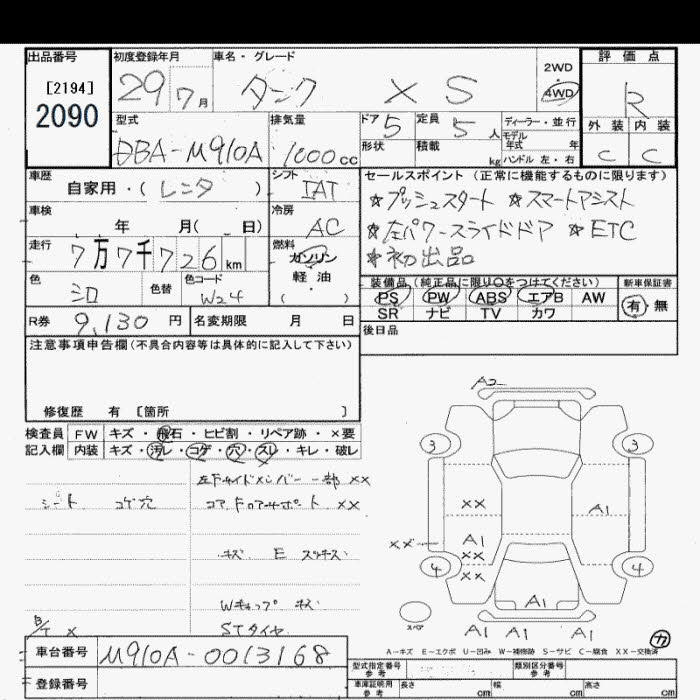 出品番号
[2194]
2090
初度登録年月
29 7月
車名・グレード
タンク XS
2WD
4WD
評価点
R
外装 内装
C C
型式
DBA-M910A
排気量
1000cc
ドア
5
定員
5人
ディーラー・並行
モデル
年式 年
形状
積載
kg
ハンドル 左・右
車歴
自家用・(レンタ)
シフト
IAT
セールスポイント (正常に機能するものに限ります)
☆プッシュスタート ☆スマートアシスト
☆左パワースライドドア ☆ETC
☆初出品
車検
年 月( 日)
冷房
AC
走行
7万7千726km
燃料
ガソリン
軽・油
( )
色
シロ
色替
色コード
W24
装備品 (純正品に限り○をつけてください)
新車保証書
PS PW ABS エアB AW
SR ナビ TV カワ
有・無
R券 9,130円
名変期限 月 日
後日品
注意事項申告欄(不具合内容等は具体的に記入して下さい)
修復歴 有 [箇所 ]
検査員 FW キズ・飛石・ヒビ割・リペア跡・×要
記入欄 内装 キズ・汚レ・コゲ・穴・スレ・キレ・破レ
左Fサイドメンバー 一部 XX
シート コゲ穴
コアFロアサポート XX
キズ E
Wキャップ キズ
STタイヤ
A2
3 3
XX
A1
XX
A1
XX
XX
4 4
A1
スペア
A1 A1 A1
カ
A-キズ E-エクボ U-凹み W-補修跡 S-サビ C-腐食 XX-交換済
車台番号 M910A-0013168
登録番号
型式指定番号
参考
類別区分番号
参考
車庫証明用
参考
長さ cm
幅 cm
高さ cm